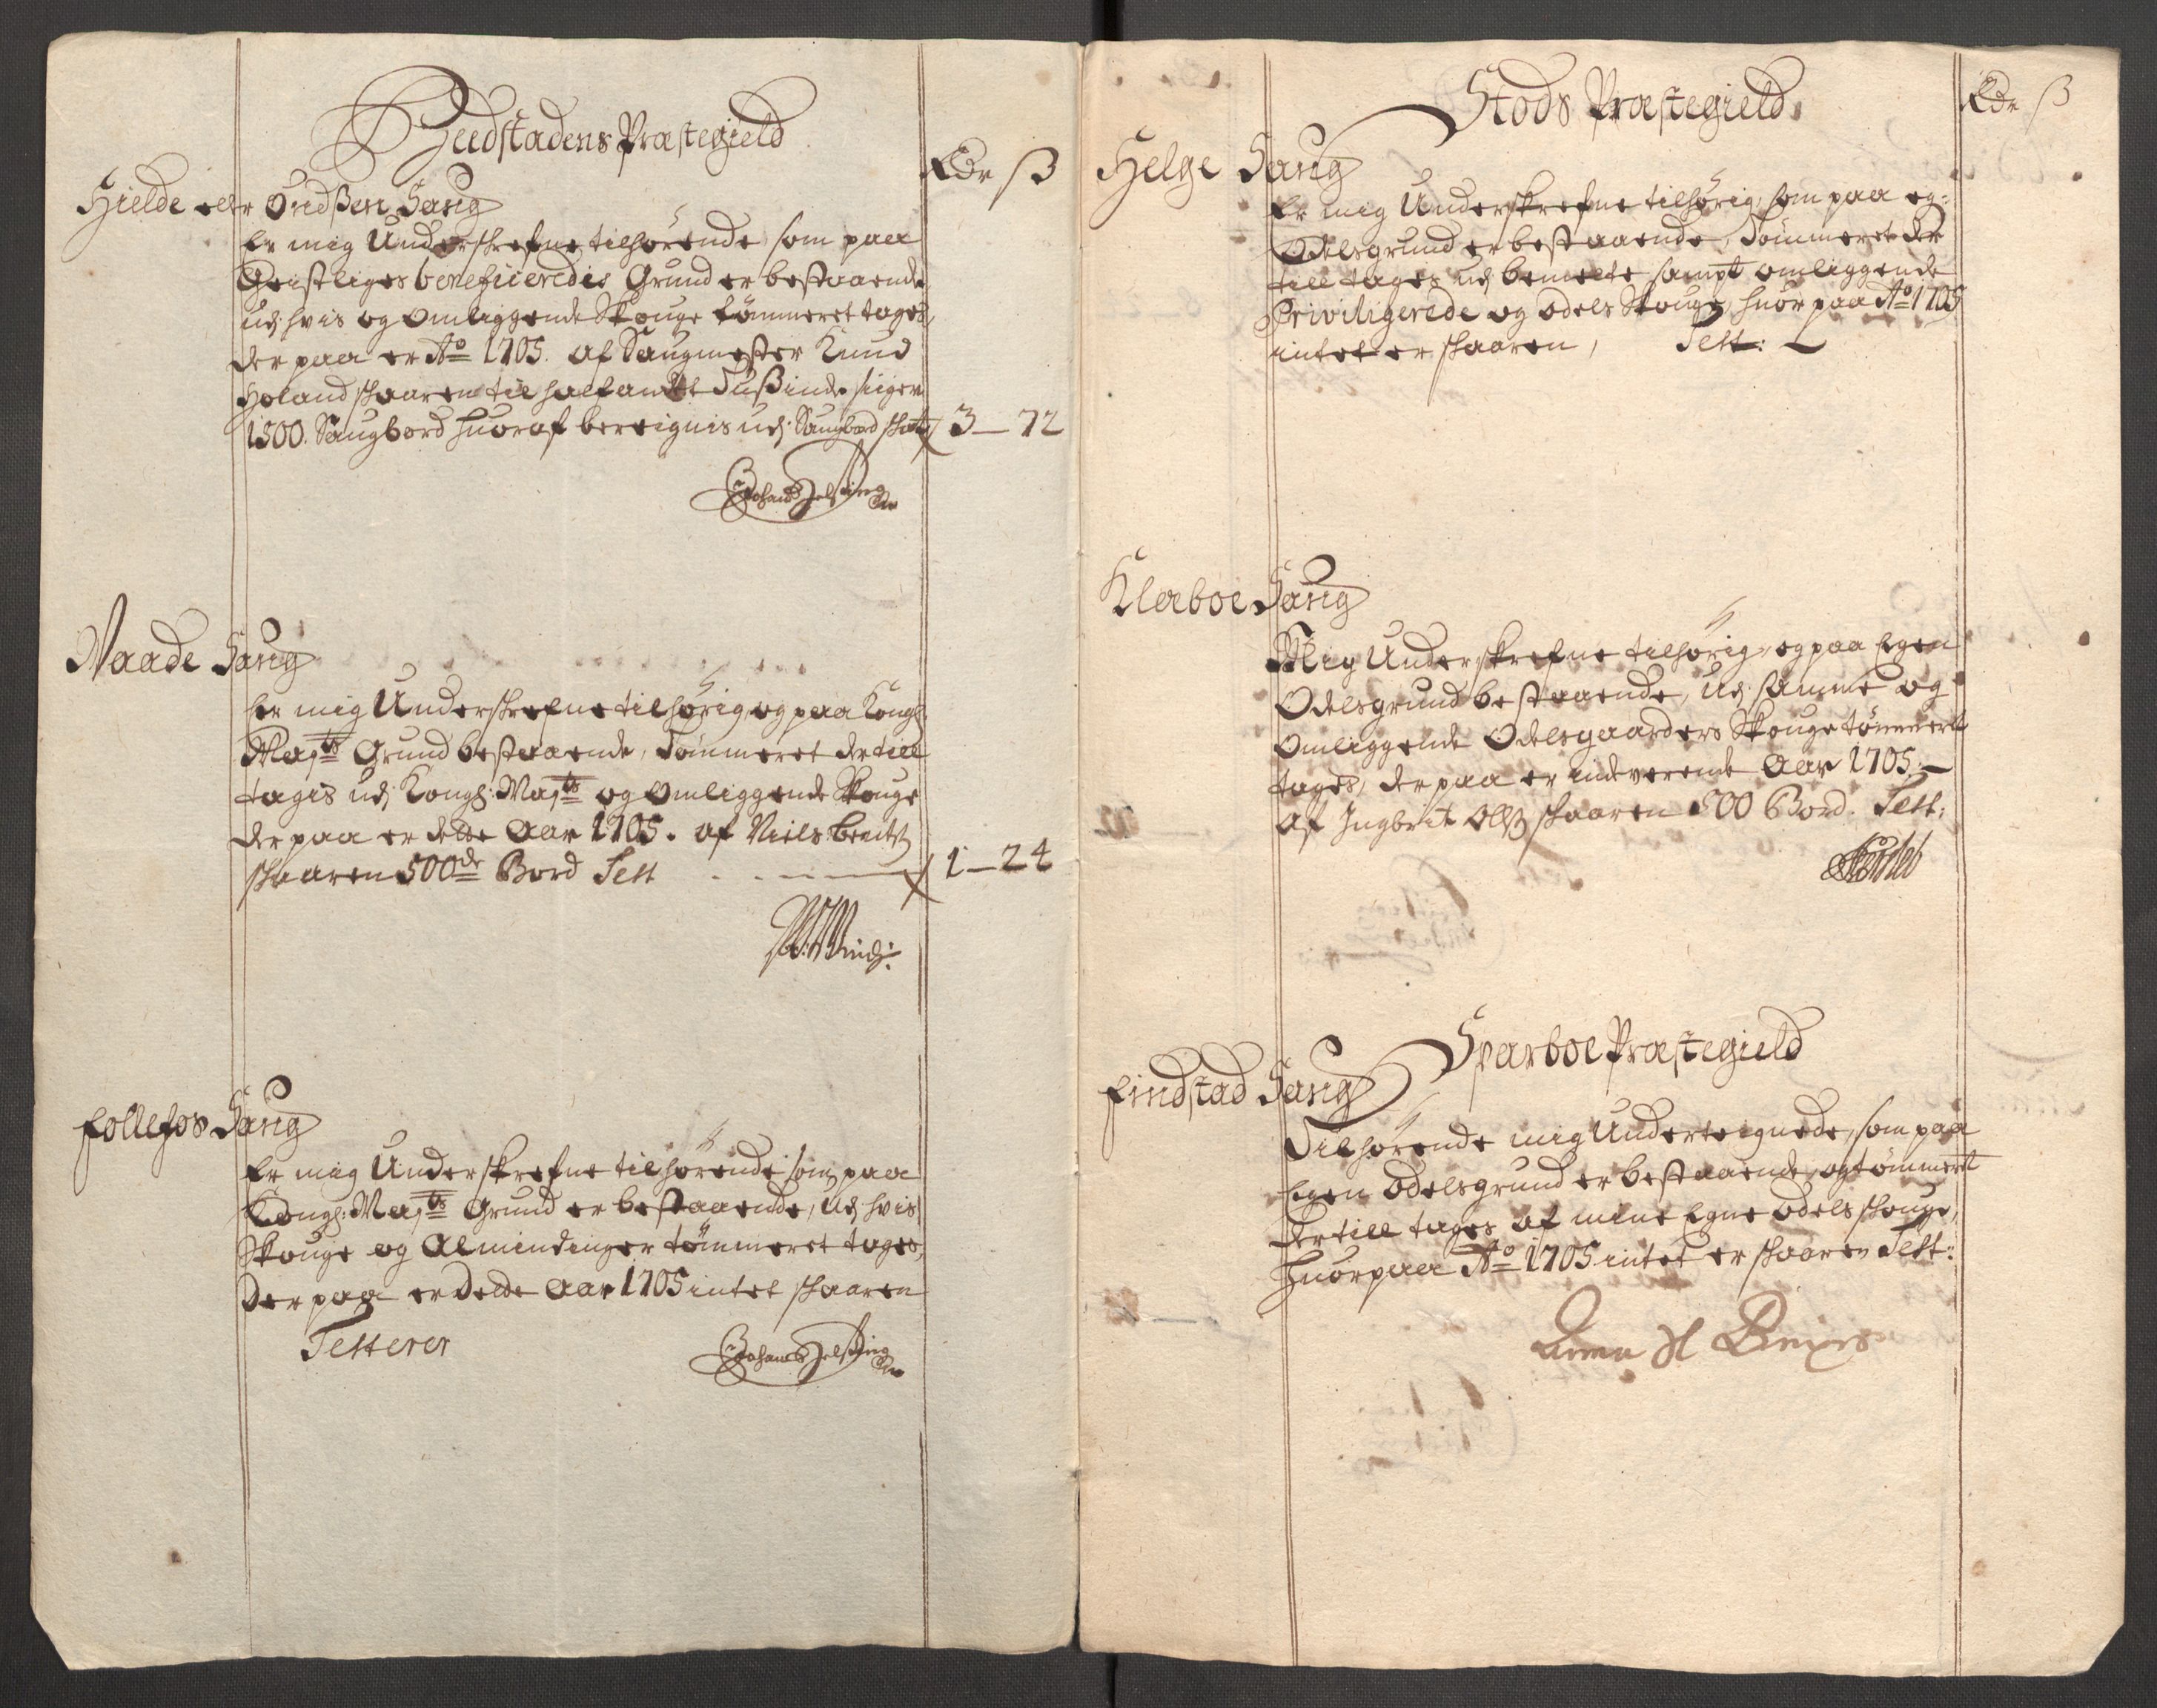 Beedstadens Præstegield
Rdr ß
Hielde eller Saug
Er mig Underskrefne tilhørende, som paa
Geistliges beneficeredis Grund er bestaaende
udj hvis og omliggende Skouge tømmeret tages,
der paa er Ao 1705. af Saugmester Knud
Holand skaaren til halfandet Tusinde siger
1500. Saugbord huoraf bereignis udj Saugbord skat 3 – 72
Vaade Saug
Er mig Underskrefne tilhørig, og paa Kongl:
Mayts Grund bestaaende, Tømmeret der till
tagis udj Kongl: Mayts og omliggende Skouge
der paa er dette Aar 1705. af Niels
skaaren 500de Bord Test 1 – 24
Follefos Saug
Er mig Underskrefne tilhørende som paa
Kongl: Mayts Grund er bestaaende, udj hvis
Skouge og Almindinger tømmeret tages,
Der paa er Dette Aar 1705 intet skaaren
Testerer
Stods Præstegield
Rdr ß
Helge Saug
Er mig Underskrefne tilhørig, som paa eg:
Odelsgrund er bestaaende, Tømmeret der
till tages udj bemelte sampt omliggende
Priviligerede og odels Skouge, huor paa Ao 1705
intet er skaaren, Test:
Klæboe Saug
Mig Underskrefne tilhørig, og paa Egen
Odelsgrund bestaaende, udj samme og
omliggende Odelsgaarders Skouge tømmeret
tages, der paa er indeverende Aar 1705
af Ingbrit skaaren 500 Bord. Test:
Sparboe Præstegield
Findstad Saug
Tilhørende mig Underteignede, som paa
Egen Odelsgrund er bestaaende, og tømmeret
der till tages af mine Egne odels skouge,
huor paa Ao 1705 intet er skaaren Test: